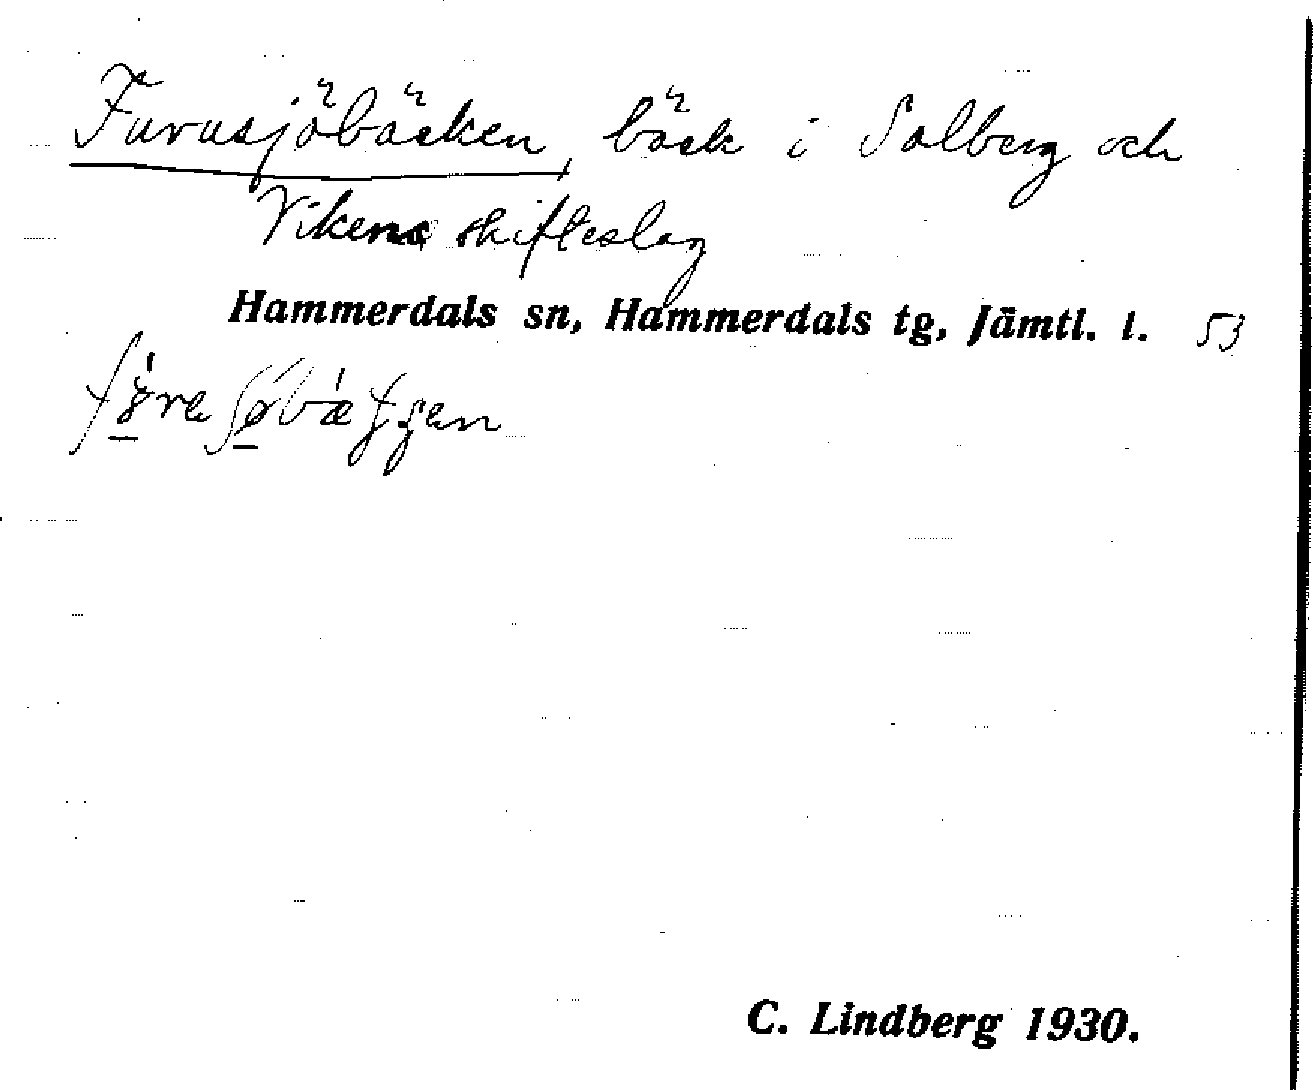 Furusjöbäcken, bäck i Solberg och
Vikens skifteslag
Hammerdals sn, Hammerdals tg, Jämtl. l. 53
C. Lindberg 1930.